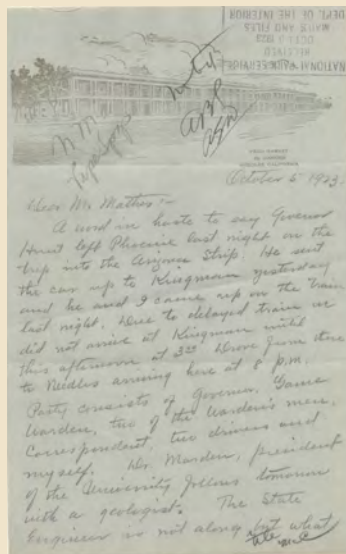 DEPT. OF THE INTERIOR
MAILS AND FILES
RECEIVED
NATIONAL PARK SERVICE
October 5 1923.
Dear Mr. Mather:-
A word in haste to say Governor
Hunt left Phoenix last night on the
trip into the Arizona Strip. He sent
the car up to Kingman yesterday
and he and I came up on the train
last night. Due to delayed train we
did not arrive at Kingman until
this afternoon at 3:00 Drove from there
to Needles arriving here at 8 p.m.
Party consists of Governor, Game
Warden, two of the Warden's men,
Correspondent two drivers and
myself. Dr. Marden, president
of the University follows tomorrow
with a geologist. The State
Engineer is not along but what